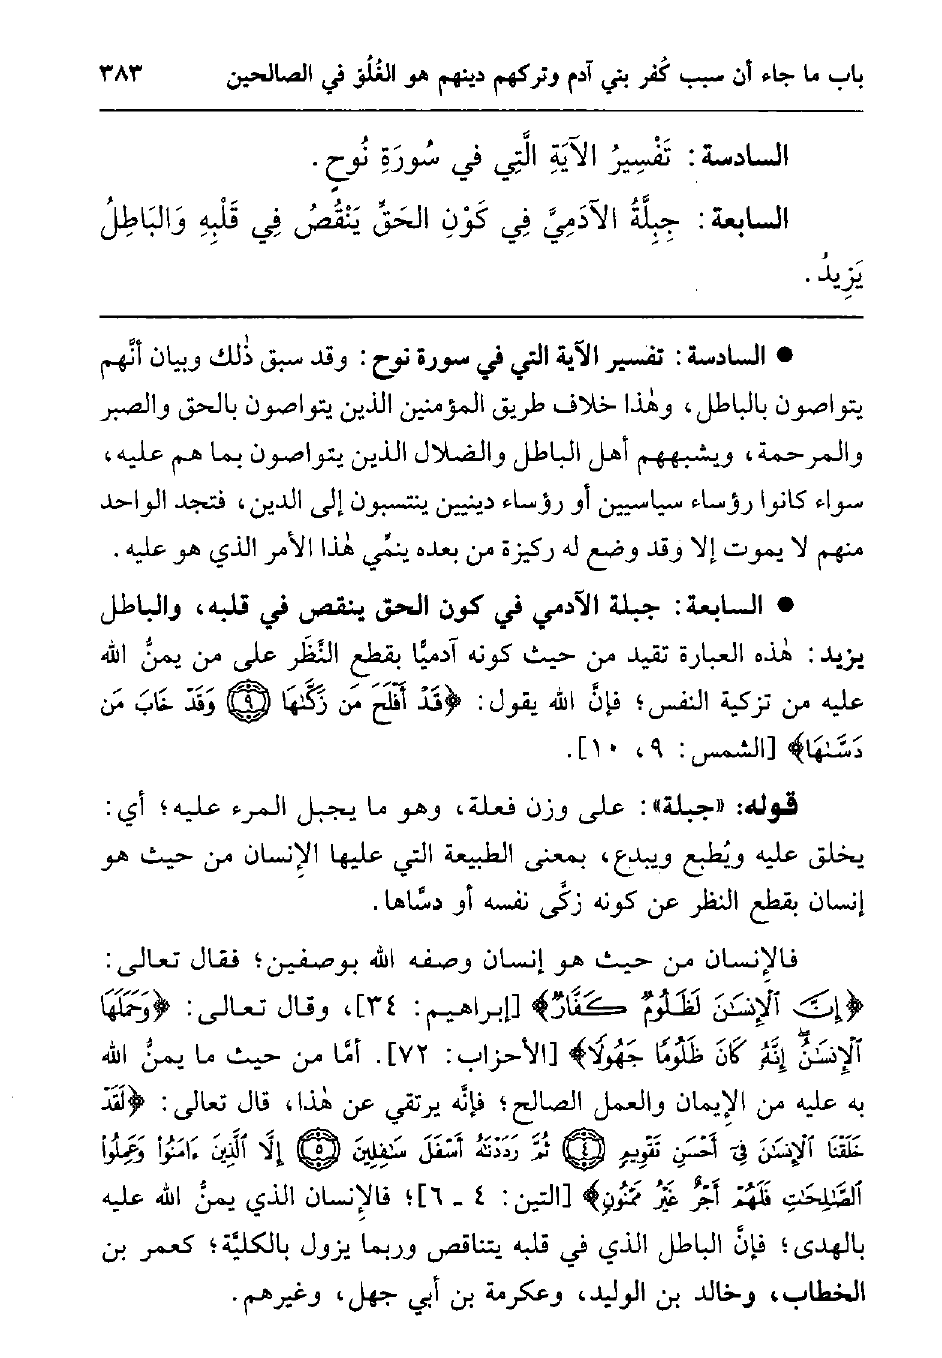 باب ما جاء أن سبب كُفر بني آدم وتركهم دينهم هو الغُلُوّ في الصالحين ٣٨٣
السادسة: تَفْسِيرُ الآيَةِ الَّتِي في سُورَةِ نُوحٍ.
السابعة: جِبِلَّةُ الآدَمِيِّ فِي كَوْنِ الحَقِّ يَنْقُصُ فِي قَلْبِهِ وَالبَاطِلُ
يَزِيدُ.
● السادسة: تفسير الآية التي في سورة نوح: وقد سبق ذٰلك وبيان أنَّهم
يتواصون بالباطل، وهٰذا خلاف طريق المؤمنين الذين يتواصون بالحق والصبر
والمرحمة، ويشبههم أهل الباطل والضلال الذين يتواصون بما هم عليه،
سواء كانوا رؤساء سياسيين أو رؤساء دينيين ينتسبون إلى الدين، فتجد الواحد
منهم لا يموت إلا وقد وضع له ركيزة من بعده ينمِّي هٰذا الأمر الذي هو عليه.
● السابعة: جبلة الآدمي في كون الحق ينقص في قلبه، والباطل
يزيد: هٰذه العبارة تقيد من حيث كونه آدميًّا بقطع النَّظَر على من يمنُّ الله
عليه من تزكية النفس؛ فإنَّ الله يقول: ﴿قَدْ أَفْلَحَ مَن زَكَّىٰهَا ۝٩ وَقَدْ خَابَ مَن
دَسَّىٰهَا﴾ [الشمس: ٩، ١٠].
قوله: «جبلة»: على وزن فعلة، وهو ما يجبل المرء عليه؛ أي:
يخلق عليه ويُطبع ويبدع، بمعنى الطبيعة التي عليها الإنسان من حيث هو
إنسان بقطع النظر عن كونه زكَّى نفسه أو دسَّاها.
فالإنسان من حيث هو إنسان وصفه الله بوصفين؛ فقال تعالى:
﴿إِنَّ ٱلْإِنسَٰنَ لَظَلُومٌ كَفَّارٌ﴾ [إبراهيم: ٣٤]، وقال تعالى: ﴿وَحَمَلَهَا
ٱلْإِنسَٰنُ ۖ إِنَّهُ كَانَ ظَلُومًا جَهُولًا﴾ [الأحزاب: ٧٢]. أمَّا من حيث ما يمنُّ الله
به عليه من الإيمان والعمل الصالح؛ فإنَّه يرتقي عن هٰذا، قال تعالى: ﴿لَقَدْ
خَلَقْنَا ٱلْإِنسَٰنَ فِيٓ أَحْسَنِ تَقْوِيمٍ ۝٤ ثُمَّ رَدَدْنَٰهُ أَسْفَلَ سَٰفِلِينَ ۝٥ إِلَّا ٱلَّذِينَ ءَامَنُوا۟ وَعَمِلُوا۟
ٱلصَّٰلِحَٰتِ فَلَهُمْ أَجْرٌ غَيْرُ مَمْنُونٍ﴾ [التين: ٤ ـ ٦]؛ فالإنسان الذي يمنُّ الله عليه
بالهدى؛ فإنَّ الباطل الذي في قلبه يتناقص وربما يزول بالكليَّة؛ كعمر بن
الخطاب، وخالد بن الوليد، وعكرمة بن أبي جهل، وغيرهم.